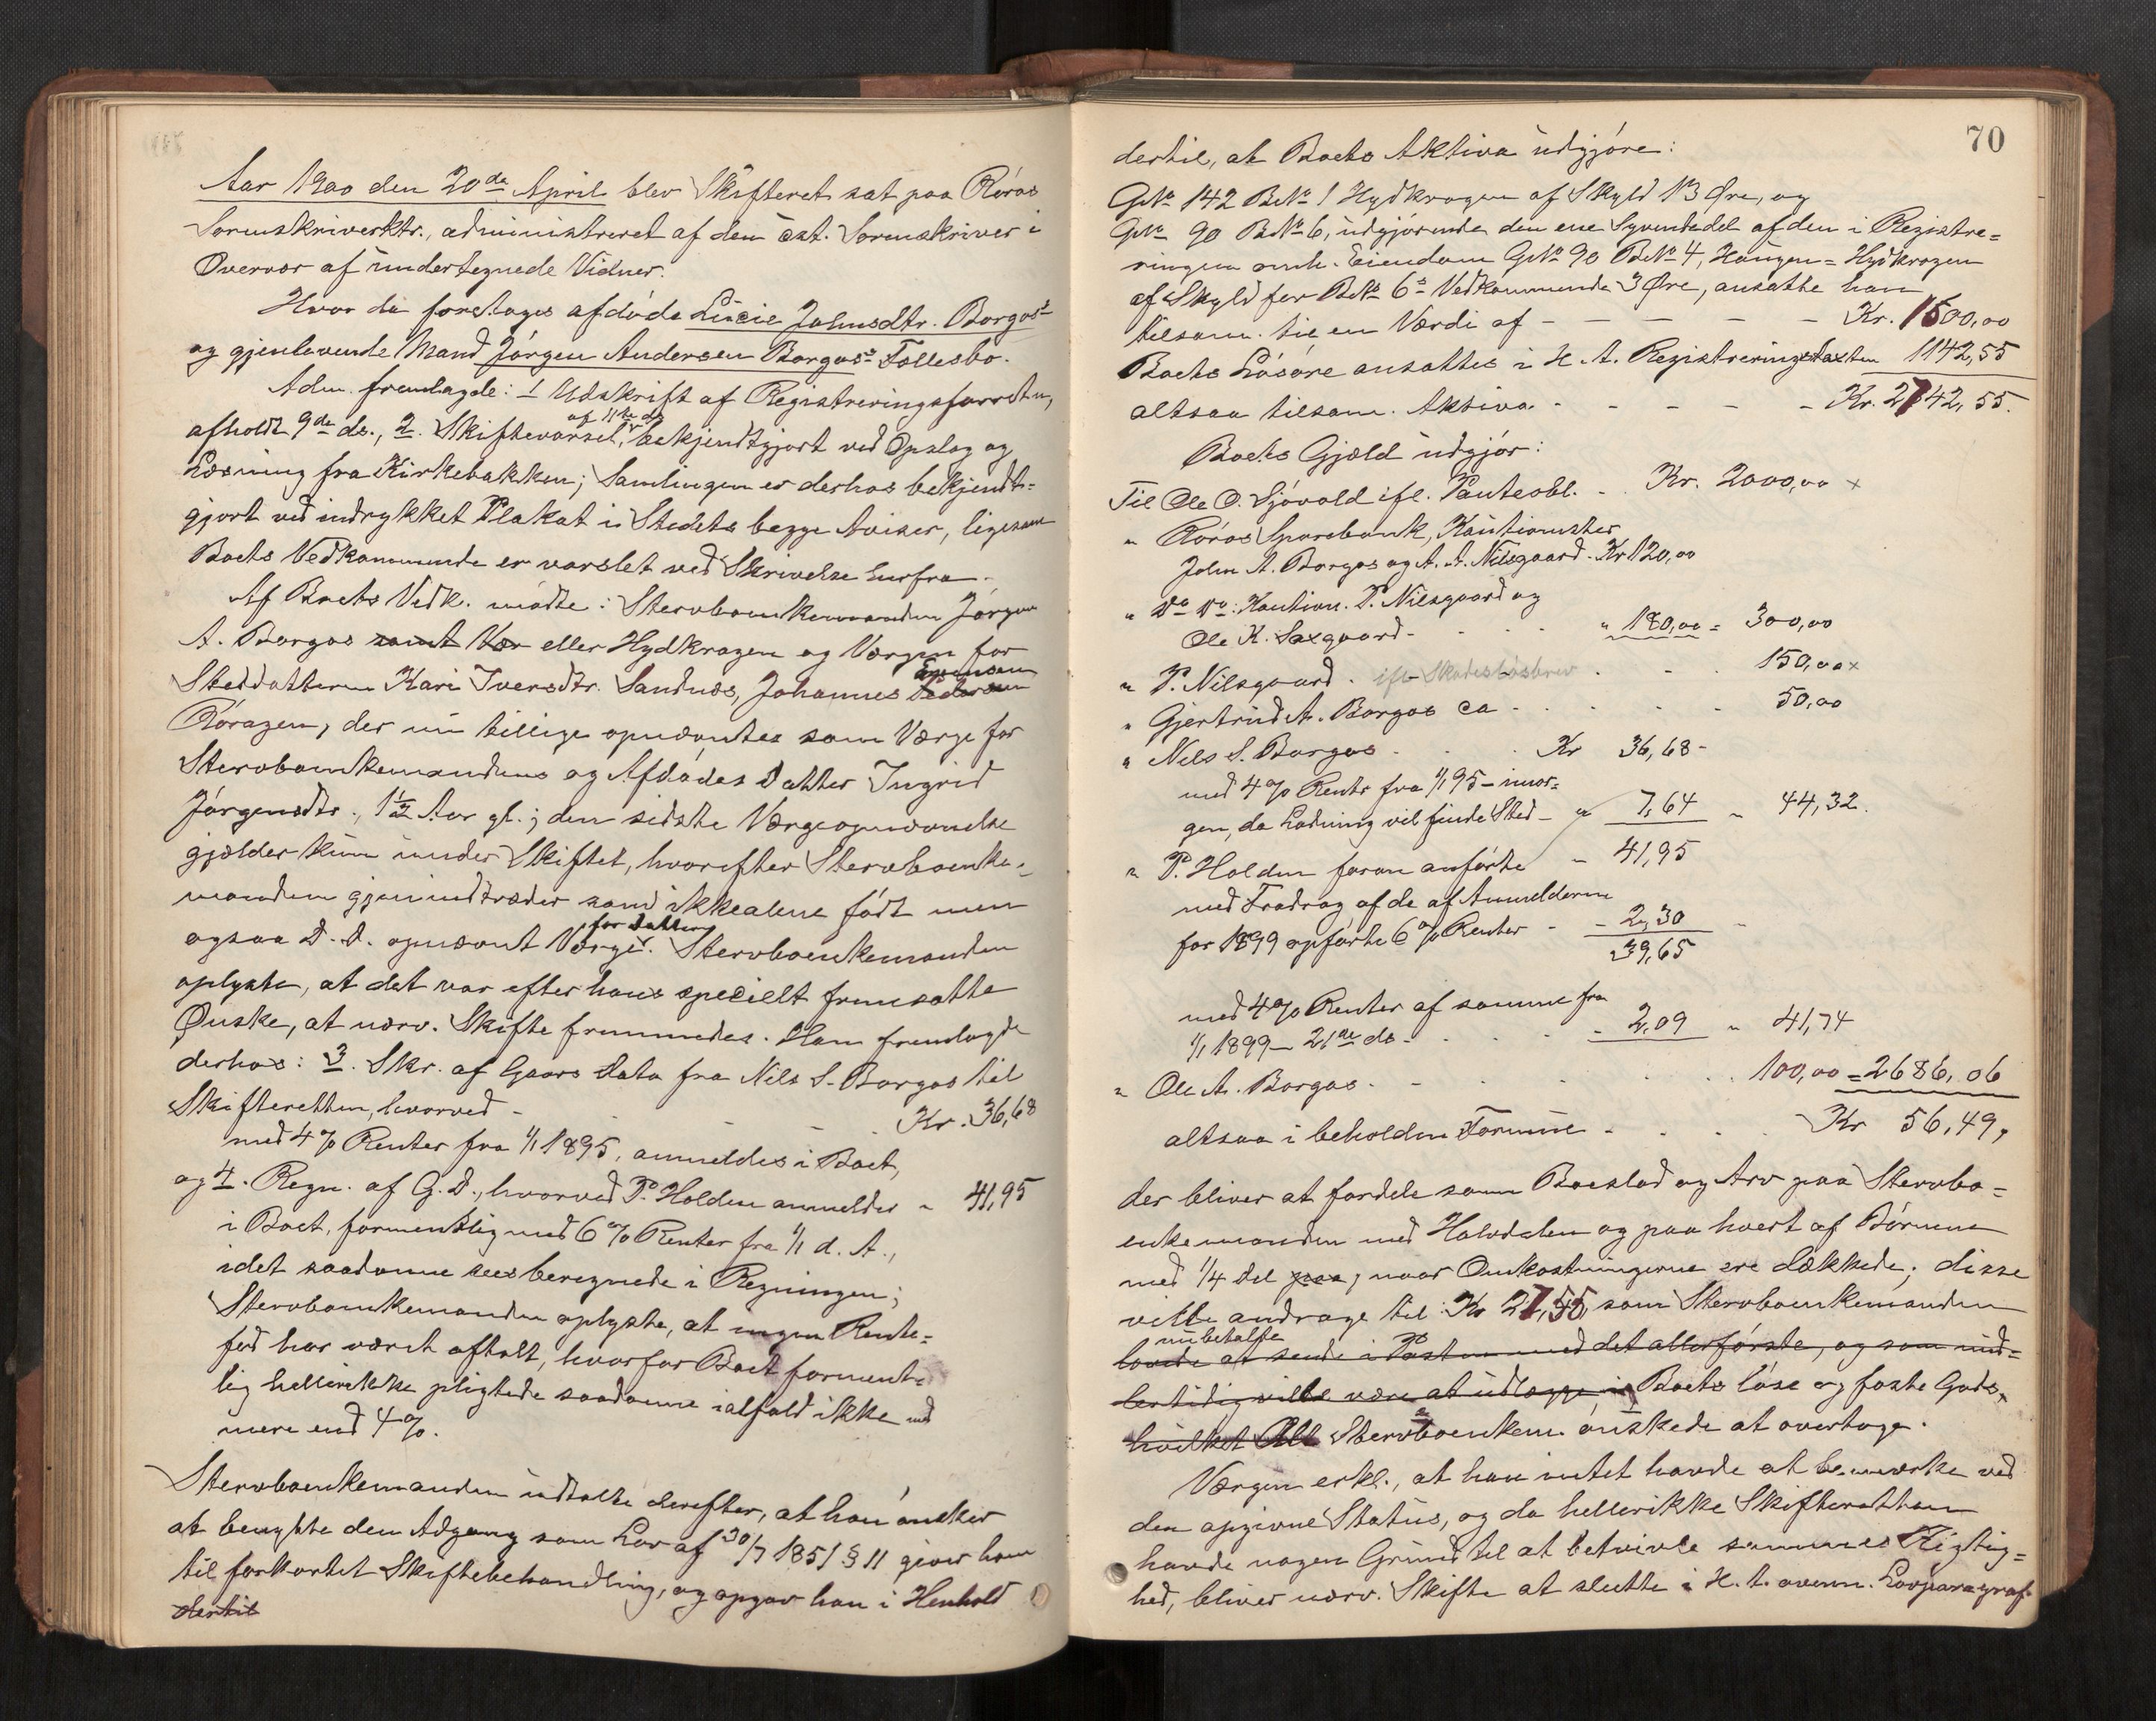 Aar 1900 den 20de April blev Skifteret sat paa Röros
Sorenskriverktr., administreret af den cst. Sorenskriver i
Overvær af undertegnede Vidner.
Hvor da foretoges afdöde Lucie Johnsdtr. Borgos's
og gjenlevende Mand Jörgen Andersen Borgos's Fællesbo.
Adm. fremlagde: 1 Udskrift af Registreringsforretn,
afholdt 9de ds., 2. Skiftevarsel, af 11te ds bekjendtgjort ved Opslag og
Læsning fra Kirkebakken; Samlingen er derhos bekjendt-
gjort ved indrykket Plakat i Stedets begge Aviser, ligesom
Boets Vedkommende er varslet ved Skrivelse herfra.
Af Boets Vedk. mödte: Stervboenkemanden Jörgen
A. Borgos samt Vær eller Hydkrogen og Værgen for
Steddatteren Kari Iversdtr. Sandnæs, Johannes Pedersen Evensen
Röragen, der nu tillige opnævntes som Værge for
Stervboenkemandens og Afdödes Datter Ingrid
Jörgensdtr., 1 1/2 Aar gl.; den sidste Værgeopnævnelse
gjælder kun under Skiftet, hvorefter Stervboenke-
manden gjenindtræder som ikkealene födt men
ogsaa D. D. opnævnt Værge for Datteren. Stervboenkemanden
oplyste, at det var efter hans specielt fremsatte
Ønske, at nærv. Skifte fremmedes. Han fremlagde
derhos: 3. Skr. af Gaars Dato fra Nils S. Borgos til
Skifteretten, hvorved - - - Kr. 36,68
med 4% Renter fra 1/1 1895, anmeldes i Boet,
og 4. Regn. af G. D., hvorved P. Holden anmelder " 41,95
i Boet, formentlig med 6% Renter fra 1/1 d. A.,
idet saadanne sees beregnede i Regningen;
Stervboenkemanden oplyste, at ingen Rente-
fod har været aftalt, hvorfor Boet forment-
lig hellerikke pligtede saadanne ialfald ikke med
mere end 4%.
Stervboenkemanden udtalte derefter, at han önsker
at benytte den Adgang som Lov af 30/7 1851 § 11 giver ham
til forkortet Skiftebehandling, og opgav han i Henhold
dertil
70
dertil, at Boets Aktiva udgjöre:
GNo 142 BNo 1 Hydkrogen af Skyld 13 Øre, og
GNo 90 BNo 6, udgjörende den ene Syvendedel af den i Registre-
ringen omh. Eiendom GNo 90 BNo 4, Haugen-Hydkrogen
af Skyld for BNo 6s Vedkommende 3 Øre, ansatte han
tilsam. til en Værdi af - - - - - Kr. 1600,00
Boets Lösöre ansattes i H. t. Registreringstaxten 1142,55
altsaa tilsam. Aktiva - - - - - Kr. 2742,55.
Boets Gjæld udgjör:
Til Ole O. Sjövold ifl. Panteobl. - Kr. 2000,00 x
" Röros Sparebank, Kautionister
John A. Borgos og A. A. Nilsgaard - Kr 120,00
" Do Do: Kaution. P. Nilsgaard og
Ole K. Saxgaard - - - " 180,00 = 300,00
" P. Nilsgaard. ifl. Skadeslösbrev - - 150,00 x
" Gjertrud A. Borgos ca - - - - 50,00
" Nils S. Borgos - - Kr 36,68 -
med 4% Rente fra 1/1 95 - imor-
gen, da Ladning vil finde Sted - " 7,64 " 44,32.
" P. Holden foran anförte " 41,95
med Fradrag af de af Anmelderne
for 1899 opförte 6% Renter - - 2,30
39,65
med 4% Renter af samme fra
1/1 1899 - 21de ds - - - - 2,09 " 41,74
" Ole A. Borgos - - - - - 100,00 = 2686,06
altsaa i beholden Formue - - - Kr 56,49,
der bliver at fordele som Boeslod og Arv paa Stervbo-
enkemanden med Halvdelen og paa hvert af Börnene
med 1/4 Del paa, naar Omkostningerne ere dækkede; disse
ville andrage til: Kr 27,55, som Stervboenkemanden
nu betalte
lovede at sende i Posten med det allerförste, og som mid-
lertidig ville være at udlægge, i Boets löse og faste Gods,
hvilket Alt Stervboenkem. önskede at overtage.
Værgen erkl., at han intet havde at bemærke ved
den opgivne Status, og da hellerikke Skifteretten
havde nogen Grund til at betvivle sammes Rigtig-
hed, bliver nærv. Skifte at slutte i H. t. ovenn. Lovparagraf.